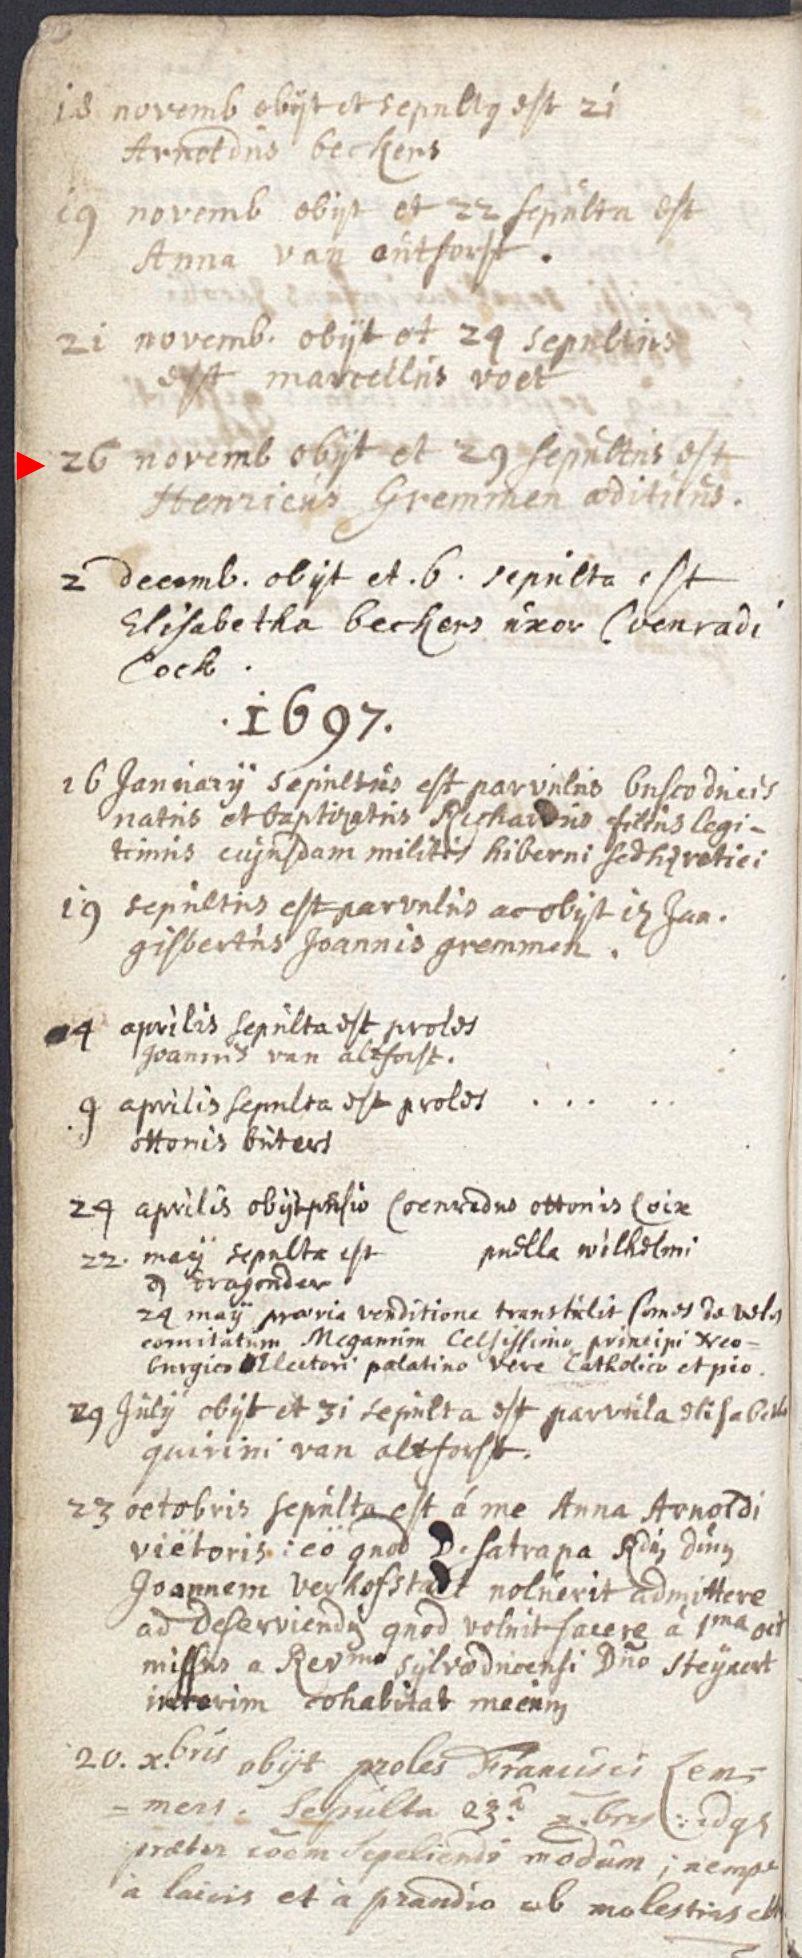 18 novemb obijt et sepultq est 21
Arnoldus beckers
19 novemb obijt et 22 sepulta est
Anna van outforst.
21 novemb. obijt et 24 sepultus
est marcellus voet
26 novemb obijt et 29 sepultus est
Henricus Gremmen ædituus.
2 decemb. obijt et .6. sepulta est
Elisabetha beckers uxor Coenradi
Cock.
.1697.
16 Januarij sepultus est parvulus buscoducis
natus et baptizatus Richardus filius legi-
timus cujusdam militis hiberni sed hæretici
19 sepultus est parvulus ac obijt 17 Jan.
gisbertus Joannis gremmen.
4 aprilis sepulta est proles
Joannis van altforst.
9 aprilis sepulta est proles . . . . .
ottonis buters
24 aprilis obijt Coenradus ottonis Coix
22. maij sepulta est puella wilhelmi
dragonder
24 maij prævia venditione transtulit Comes de
comitatum Megansem Celsissimo principi Neo-
burgico Electori palatino vere Catholico et pio.
29 Julij obijt et 31 sepulta est parvula elisabeth
quirini van altforst.
23 octobris sepulta est á me Anna Arnoldi
viëtoris: eö quod D. satrapa Rdũ dñum
Joannem Verhofstadt noluerit admittere
ad deserviendũ quod voluit facere á 1ma oct
missus a Revmo sylvæducensi Dño Steyaert
interim cohabitat mecum
20. x.bris obijt proles Francisci Lem-
-mers. Sepulta 23.a x.bris: idq3
præter cõem sepeliendi modum; nempe
à laicis et à prandio ob molestias